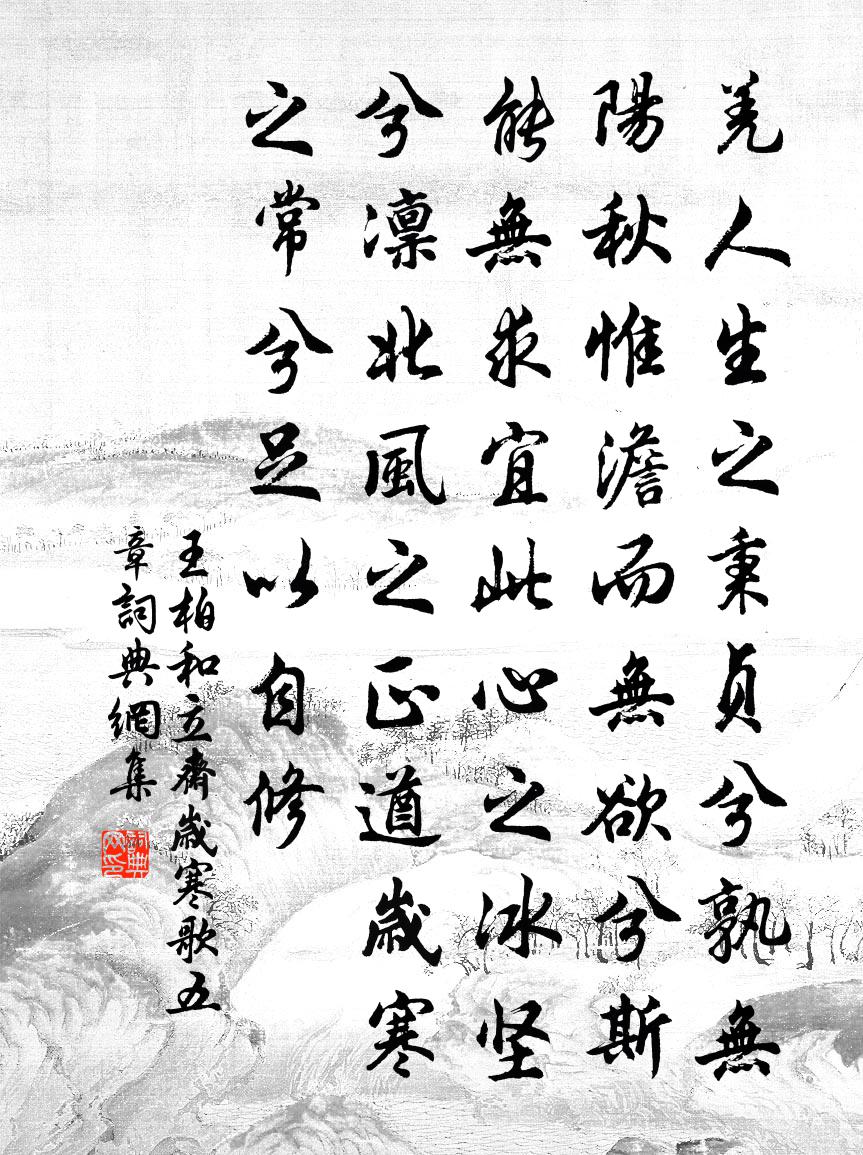 羌人生之秉貞兮孰無
陽秋惟澹而無欲兮斯
能無求宜此心之冰坚
兮凛北風之正遒歲寒
之常兮足以自修
王柏和立齋歲寒歌五
章詞典網集
詞典網印